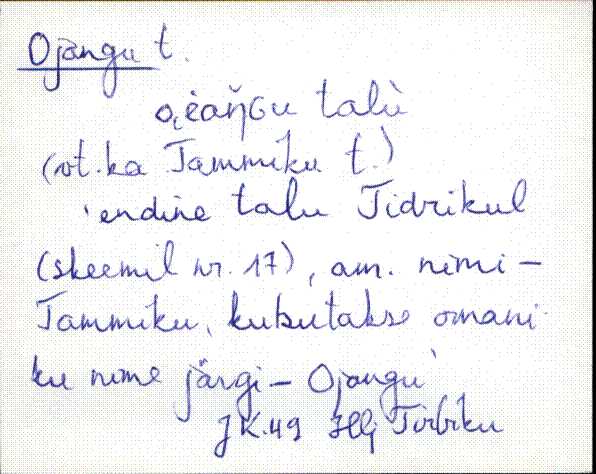 Ojangu t.
talù
(vt. ka Tammiku t.)
endine talu Tidrikul
(skeemil nr. 17), am. nimi –
Tammiku, kutsutakse omani-
ku nime järgi – Ojangu